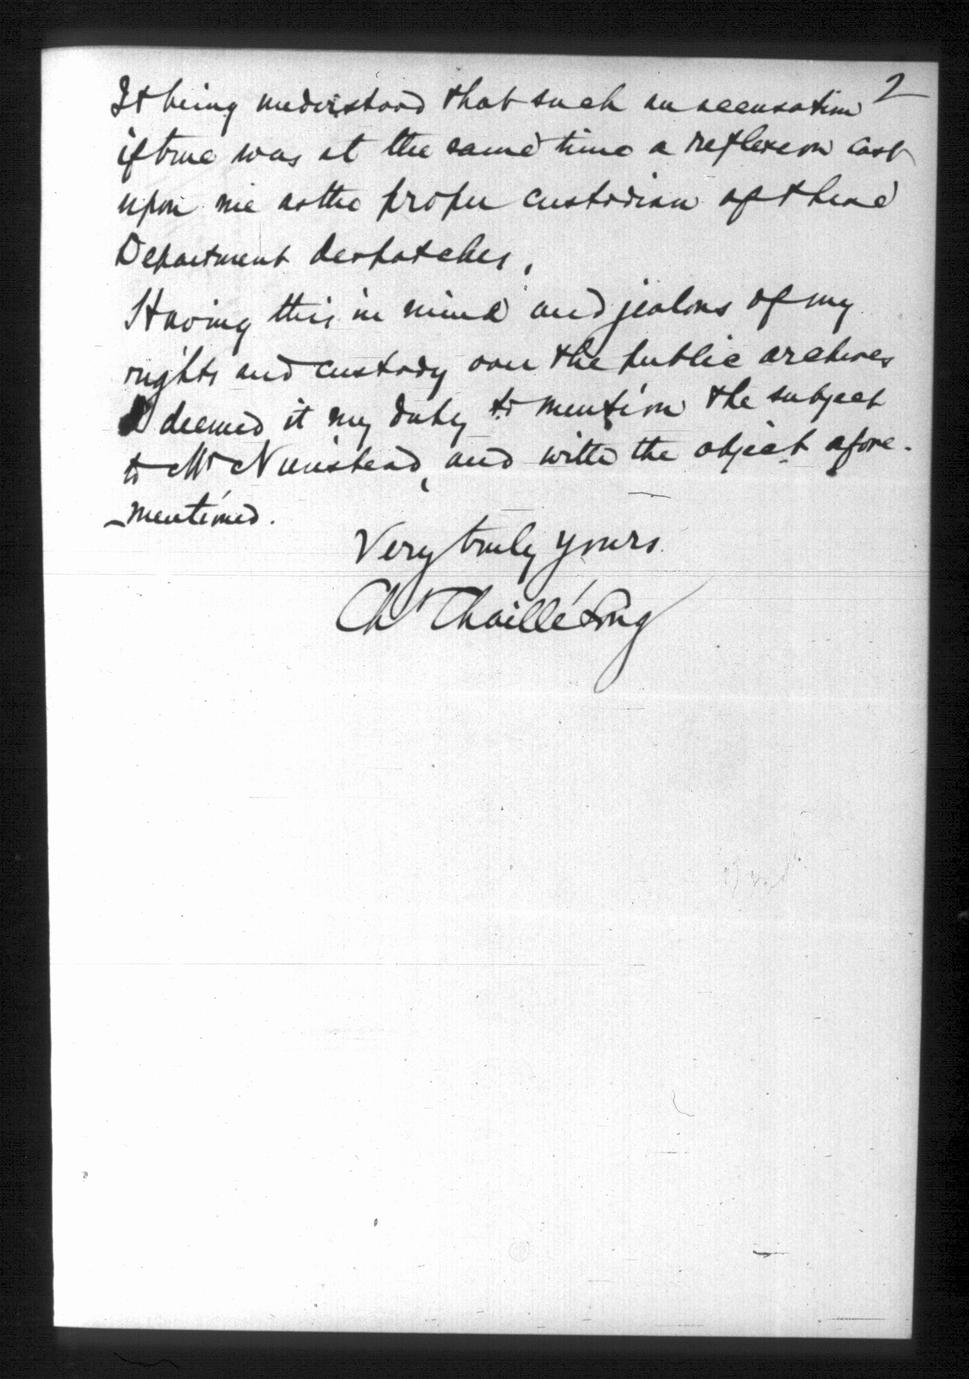 2
It being understood that such an accusation
if true was at the same time a reflexion cast
upon me as the proper custodian of these
Department despatches.
Having this in mind and jealous of my
rights and custody over the public archives
I deemed it my duty to mention the subject
to Mr and with the object afore-
-mentioned.
Very truly yours
Ch Chaillé Long